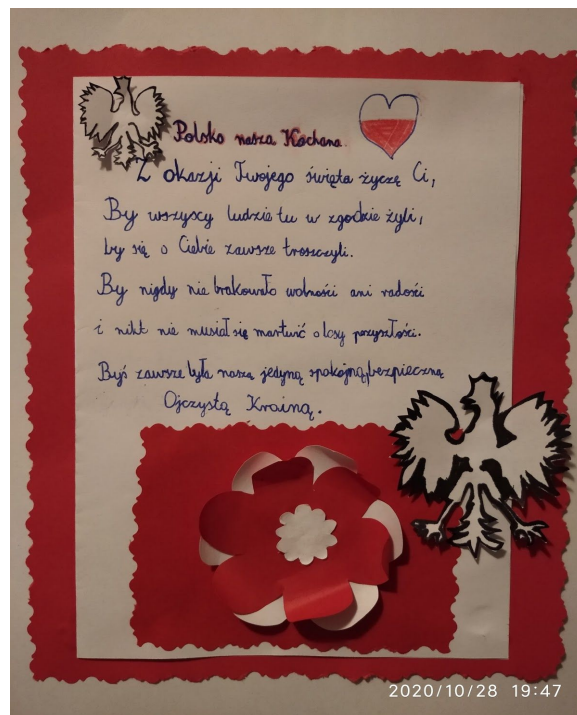 Polsko nasza Kochana.
Z okazji Twojego święta życzę Ci,
By wszyscy ludzie tu w zgodzie żyli,
by się o Ciebie zawsze troszczyli.
By nigdy nie brakowało wolności ani radości
i nikt nie musiał się martwić o losy przyszłości.
Byś zawsze była naszą jedyną spokojną, bezpieczną
Ojczystą Krainą.
2020/10/28 19:47